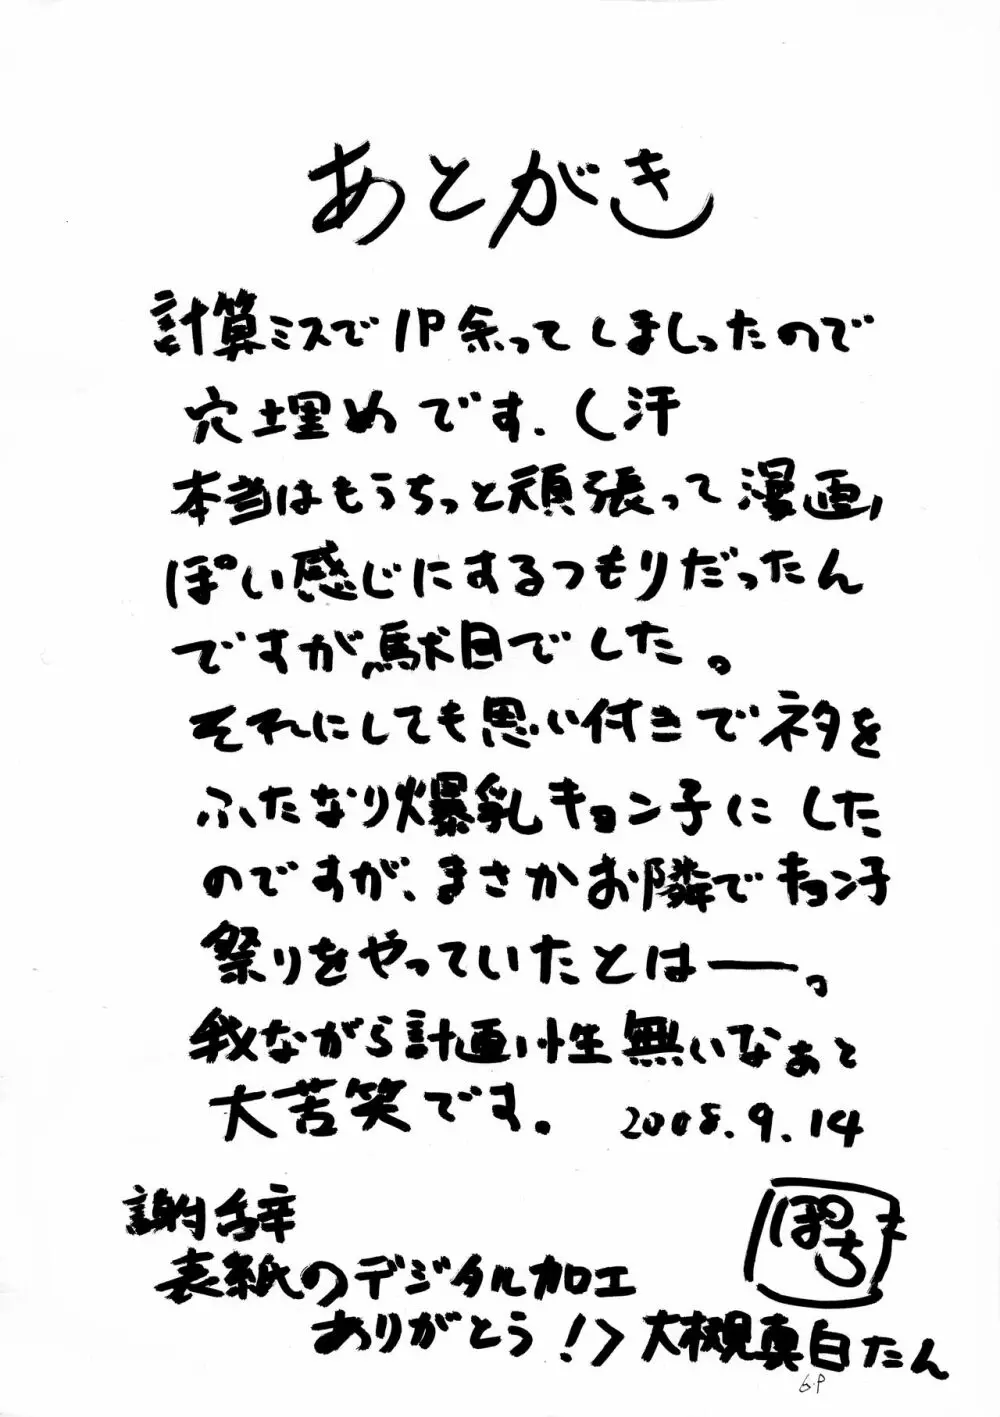 あとがき
計算ミスで1P余ってしましったので
穴埋めです、(汗
本当はもうちっと頑張って漫画っ
ぽい感じにするつもりだったん
ですが、駄目でした。
それにしても思い付きでネタを
ふたなり爆乳キョン子にした
のですが、まさかお隣でキョン子
祭りをやっていたとはー。
我ながら計画性無いなぁと
大苦笑です。 2008.9.14
謝辞
表紙のデジタル加工
ありがとう!>大槻真白たん
ぽち
6P